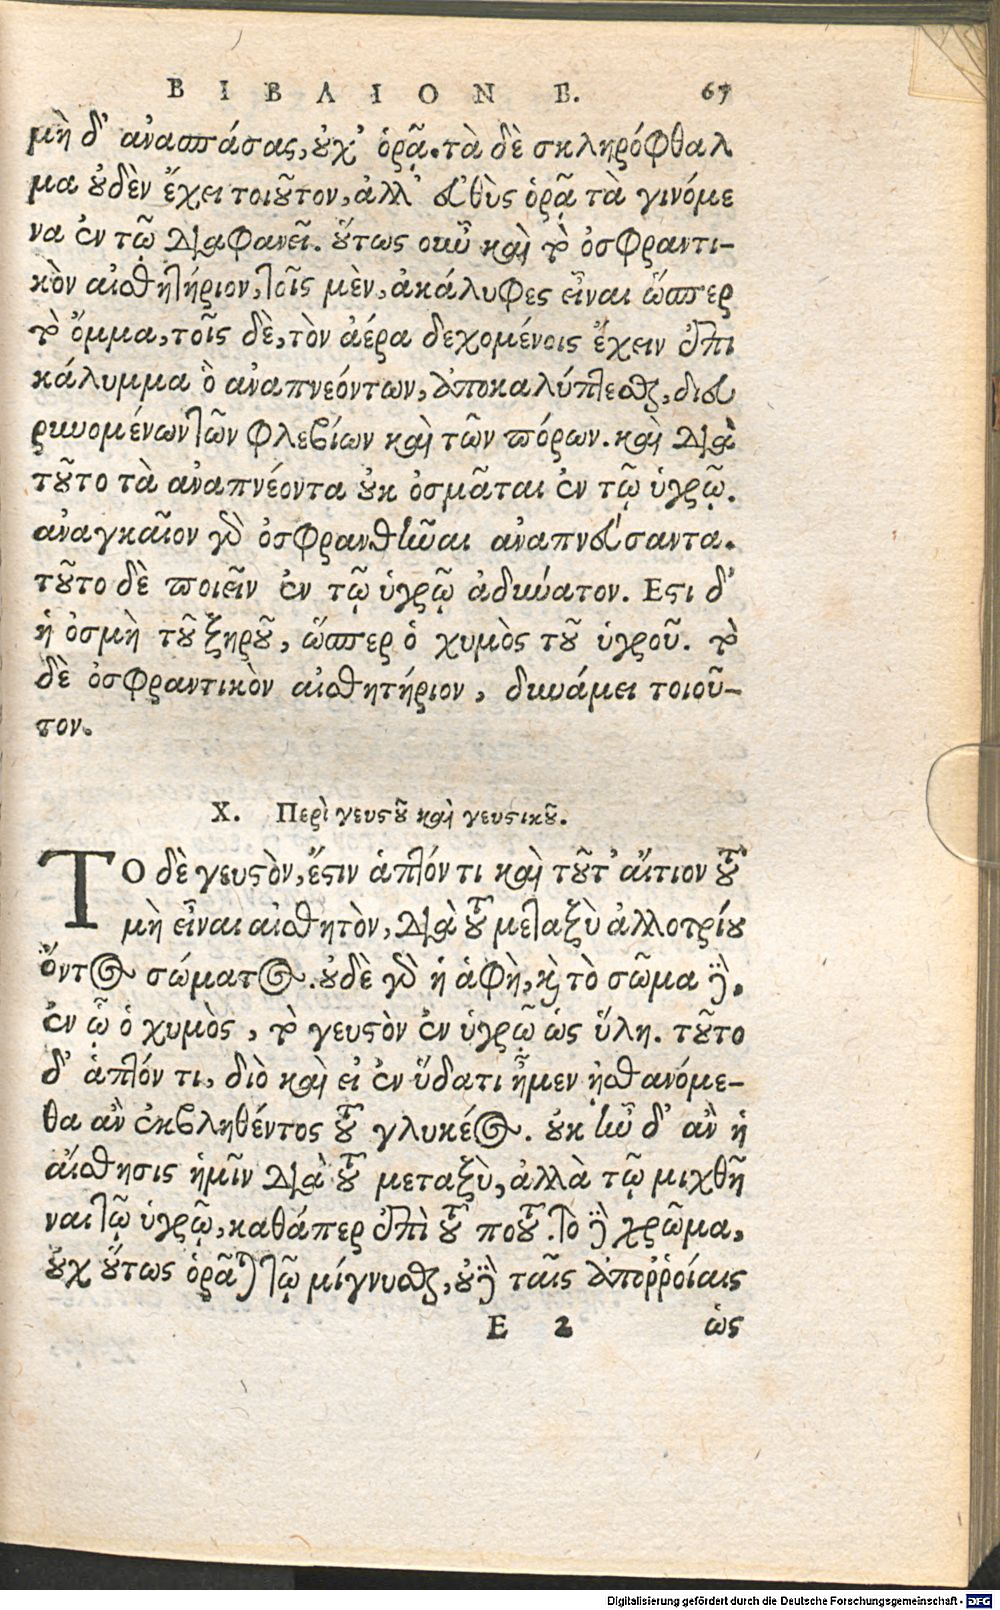 ΒΙΒΛΙΟΝ Β. 67
μὴ δ' ἀνασπάσας, οὐχ' ὁρᾷ. τὰ δὲ σκληρόφθαλ
μα οὐδὲν ἔχει τοιοῦτον, ἀλλ' εὐθὺς ὁρᾷ τὰ γινόμε
να ἐν τῷ διαφανεῖ. οὕτως οὖν καὶ τὸ ὀσφραντι-
κὸν αἰσθητήριον, τοῖς μὲν, ἀκάλυφες εἶναι ὥσπερ
τὸ ὄμμα, τοῖς δὲ, τὸν ἀέρα δεχομένοις ἔχειν ἐπι
κάλυμμα ὃ ἀναπνεόντων, ἀποκαλύπτεσθαι, διευ
ρυνομένων τῶν φλεβίων καὶ τῶν πόρων. καὶ διὰ
τοῦτο τὰ ἀναπνέοντα οὐκ ὀσμᾶται ἐν τῷ ὑγρῷ.
ἀναγκαῖον γὰρ ὀσφρανθῆναι ἀναπνεύσαντα.
τοῦτο δὲ ποιεῖν ἐν τῷ ὑγρῷ ἀδύνατον. Εστι δ'
ἡ ὀσμὴ τοῦ ξηροῦ, ὥσπερ ὁ χυμὸς τοῦ ὑγροῦ. τὸ
δὲ ὀσφραντικὸν αἰσθητήριον, δυνάμει τοιοῦ-
τον.
X. Περὶ γευστοῦ καὶ γευστικοῦ.
ΤΟ δὲ γευστὸν, ἔστιν ἁπτόν τι καὶ τοῦτ' αἴτιον τοῦ
μὴ εἶναι αἰσθητὸν, διὰ τοῦ μεταξὺ ἀλλοτρίου
ὄντος σώματος. οὐδὲ γὰρ ἡ ἁφὴ, καὶ τὸ σῶμα δὲ,
ἐν ᾧ ὁ χυμὸς, τὸ γευστὸν ἐν ὑγρῷ ὡς ὕλη. τοῦτο
δ' ἁπτόν τι, διὸ καὶ εἰ ἐν ὕδατι ἦμεν ᾐσθανόμε-
θα ἂν ἐκβληθέντος τοῦ γλυκέος. οὐκ ἦν δ' ἂν ἡ
αἴσθησις ἡμῖν διὰ τοῦ μεταξὺ, ἀλλὰ τῷ μιχθῆ
ναι τῷ ὑγρῷ, καθάπερ ἐπὶ τοῦ ποτοῦ. τὸ δὲ χρῶμα,
οὐχ οὕτως ὁρᾶται τῷ μίγνυσθαι, οὐδὲ ταῖς ἀποῤῥοίαις
E 2 ὡς
Digitalisierung gefördert durch die Deutsche Forschungsgemeinschaft - DFG